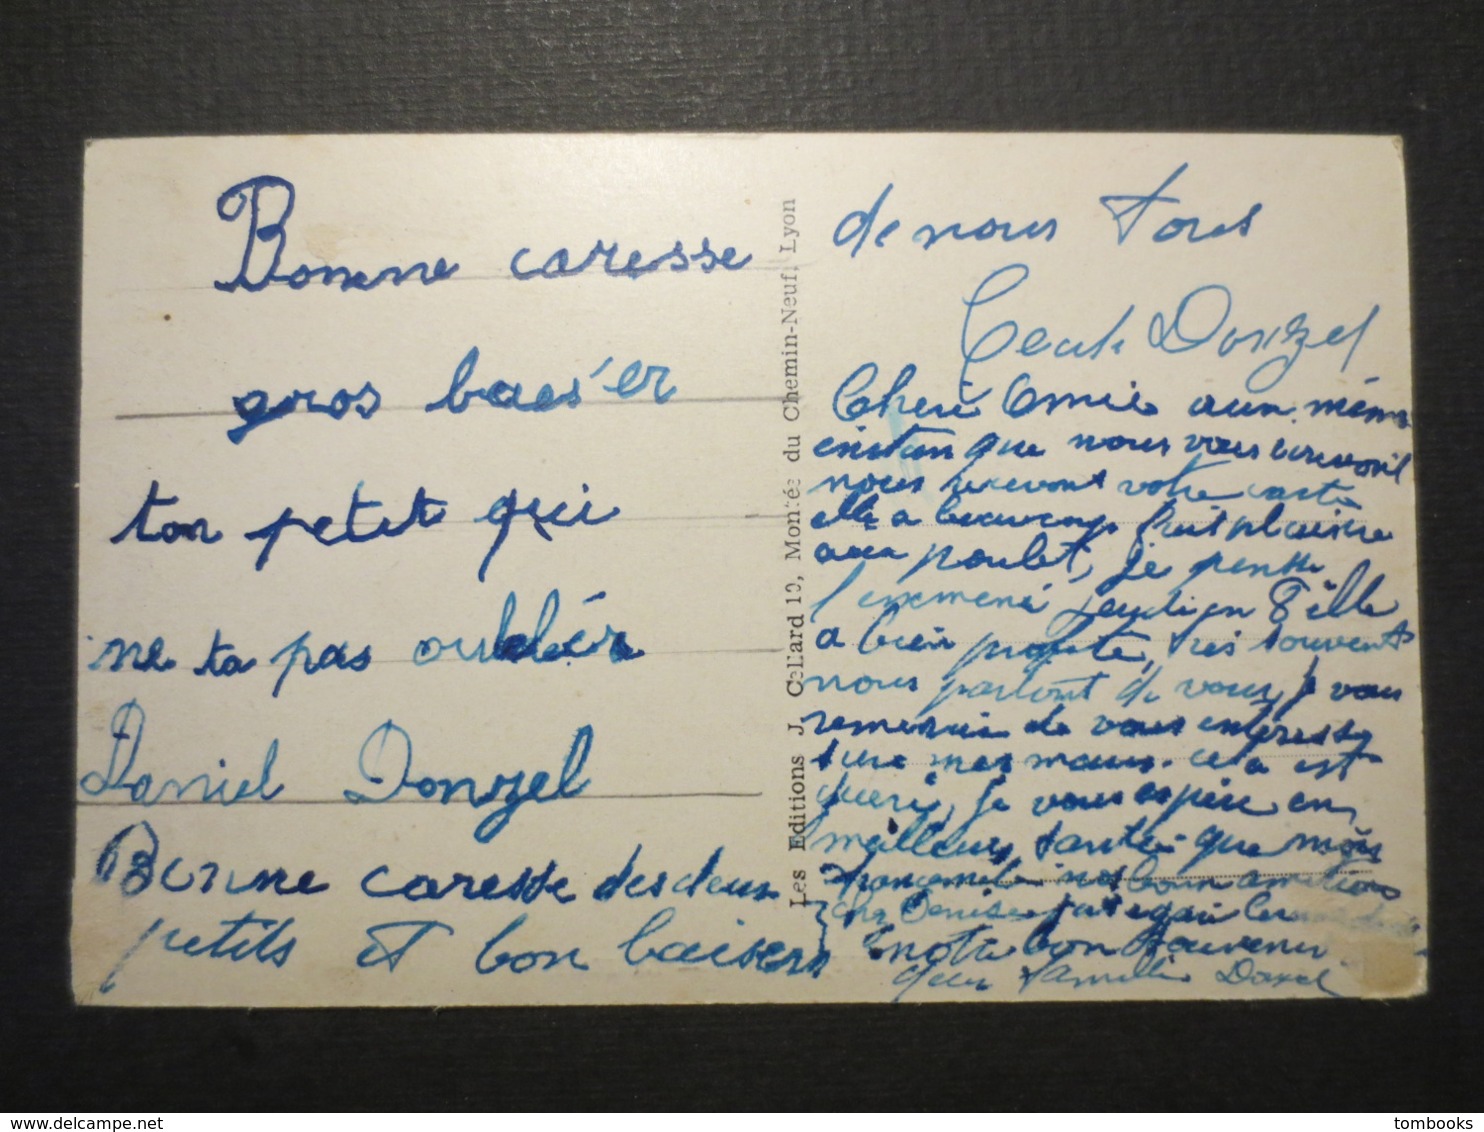 Bonne caresse
gros baes'er
ton petit qui
ne ta pas oublier
Daniel Donzel
Bonne caresse des deux
petits et bon baisers
Les Editions J. Cellard 10, Montée du Chemin-Neuf, Lyon
de nous tous
Donzel
Cheri Amie aux même
instan que nous vous
nous recevont votre carte
elle a beaucoup fait plaisir
aux poulet, je pense
jeudi en 8 elle
a bien profité, tres souvent
nous parlont de vous, je vous
remerci de vous intéresse
sure mes maux. cela est
gueri, je vous espère en
meilleur santé que mois
transmete nos bon amitions
che Denise
nota bon souvenir
famille Donzel
tombooks